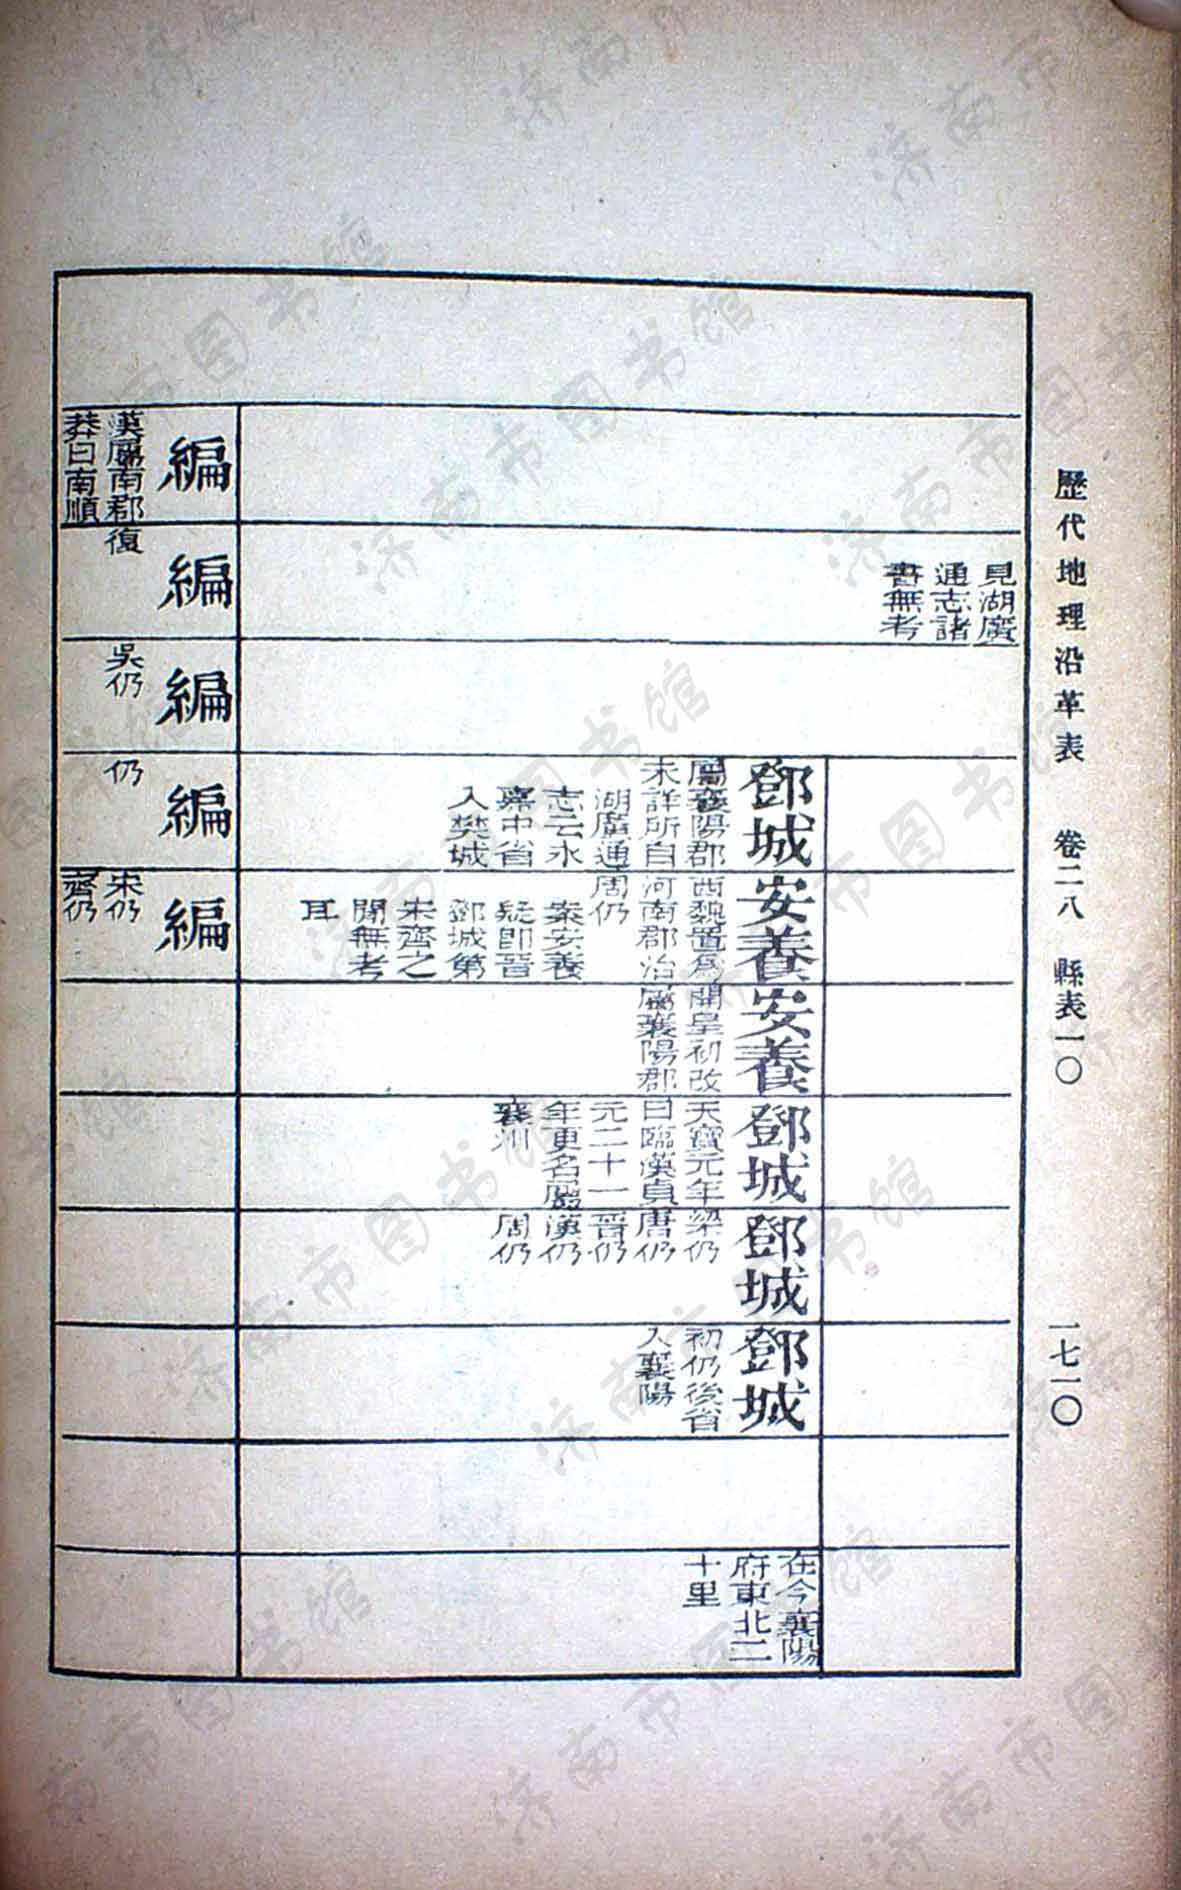 歷代地理沿革表 卷二八 縣表一〇 一七一〇
見湖廣
通志諸
書無考
鄧城
屬襄陽郡
未詳所自
湖廣通
志云永
熹中省
入樊城
安養
西魏置爲
河南郡治
周仍
案安養
疑卽晉
鄧城第
宋齊之
閒無考
耳
安養
開皇初改
屬襄陽郡
鄧城
天寶元年
曰臨漢貞
元二十一
年更名屬
襄州
鄧城
梁仍
唐仍
晉仍
漢仍
周仍
鄧城
初仍後省
入襄陽
在今襄陽
府東北二
十里
編
漢屬南郡
莽曰南順
復
編
編
吳仍
編
仍
編
宋仍
齊仍
济南市图书馆